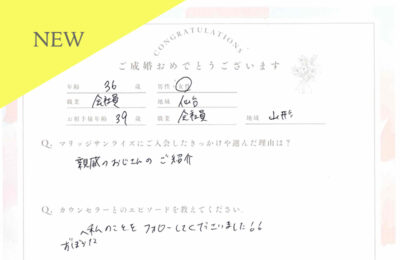 NEW
CONGRATULATIONS
ご成婚おめでとうございます
年齢 36 歳 男性・女性
職業 会社員 地域 仙台
お相手様年齢 39 歳 職業 会社員 地域 山形
Q. マリッジサンライズにご入会したきっかけや選んだ理由は?
親戚のおじさんのご紹介
Q. カウンセラーとのエピソードを教えてください。
私のことを フォローしてくださいました